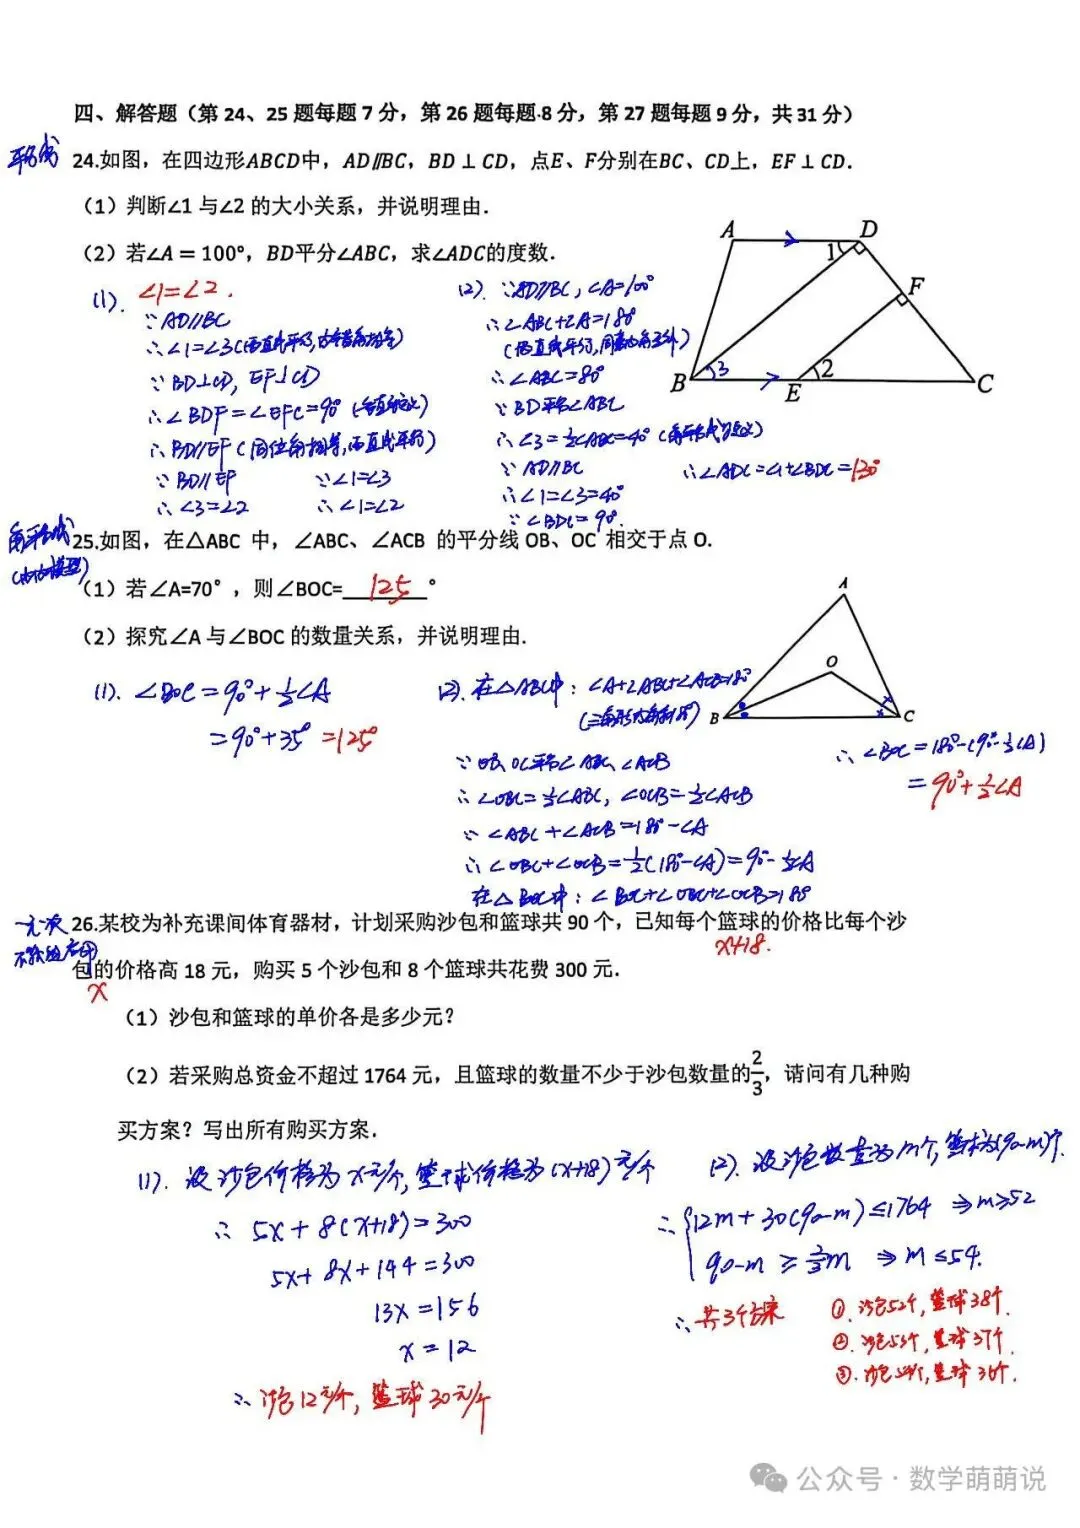 四、解答题（第 24、25 题每题 7 分，第 26 题每题 8 分，第 27 题每题 9 分，共 31 分）
24.如图，在四边形ABCD中，AD∥BC，BD⊥CD，点E、F分别在BC、CD上，EF⊥CD．
（1）判断∠1 与∠2 的大小关系，并说明理由．
（2）若∠A = 100°，BD平分∠ABC，求∠ADC的度数．
A D 1 F B 3 E 2 C
(1). ∠1=∠2.
∵ AD∥BC
∴ ∠1=∠3(两直线平行,内错角相等)
∵ BD⊥CD, EF⊥CD
∴ ∠BDF=∠EFC=90° (垂直定义)
∴ BD∥EF (同位角相等,两直线平行)
∵ BD∥EF ∵ ∠1=∠3
∴ ∠3=∠2 ∴ ∠1=∠2
(2). ∵AD∥BC, ∠A=100°
∴ ∠ABC+∠A=180°
(两直线平行,同旁内角互补)
∴ ∠ABC=80°
∵ BD平分∠ABC
∴ ∠3=½∠ABC=40° (角平分线定义)
∵ AD∥BC
∴ ∠1=∠3=40°
∵ ∠BDC=90°.
∴ ∠ADC=∠1+∠BDC=130°
角平分线
25.如图，在△ABC 中，∠ABC、∠ACB 的平分线 OB、OC 相交于点 O.
（1）若∠A=70°，则∠BOC=125°
（2）探究∠A 与∠BOC 的数量关系，并说明理由.
A O B C
(1). ∠BOC=90°+½∠A
=90°+35°=125°
(2). 在△ABC中: ∠A+∠ABC+∠ACB=180°
(三角形内角和180°)
∵ OB、OC平分∠ABC、∠ACB
∴ ∠OBC=½∠ABC, ∠OCB=½∠ACB
∵ ∠ABC+∠ACB=180°-∠A
∴ ∠OBC+∠OCB=½(180°-∠A)=90°-½∠A
在△BOC中: ∠BOC+∠OBC+∠OCB=180°
∴ ∠BOC=180°-(90°-½∠A)
=90°+½∠A
26.某校为补充课间体育器材，计划采购沙包和篮球共 90 个，已知每个篮球的价格比每个沙
x+18.
包的价格高 18 元，购买 5 个沙包和 8 个篮球共花费 300 元．
x
（1）沙包和篮球的单价各是多少元？
（2）若采购总资金不超过 1764 元，且篮球的数量不少于沙包数量的2/3，请问有几种购
买方案？写出所有购买方案．
(1). 设沙包价格为x元/个, 篮球价格为(x+18)元/个
∴ 5x+8(x+18)=300
5x+8x+144=300
13x=156
x=12
∴ 沙包12元/个, 篮球30元/个
(2). 设沙包数量为m个, 篮球为(90-m)个.
∴ {12m+30(90-m)≤1764 ⇒m≥52
90-m≥⅔m ⇒m≤54.
∴ 共3个方案
①. 沙包52个, 篮球38个.
②. 沙包53个, 篮球37个.
③. 沙包54个, 篮球36个.
公众号 · 数学萌萌说